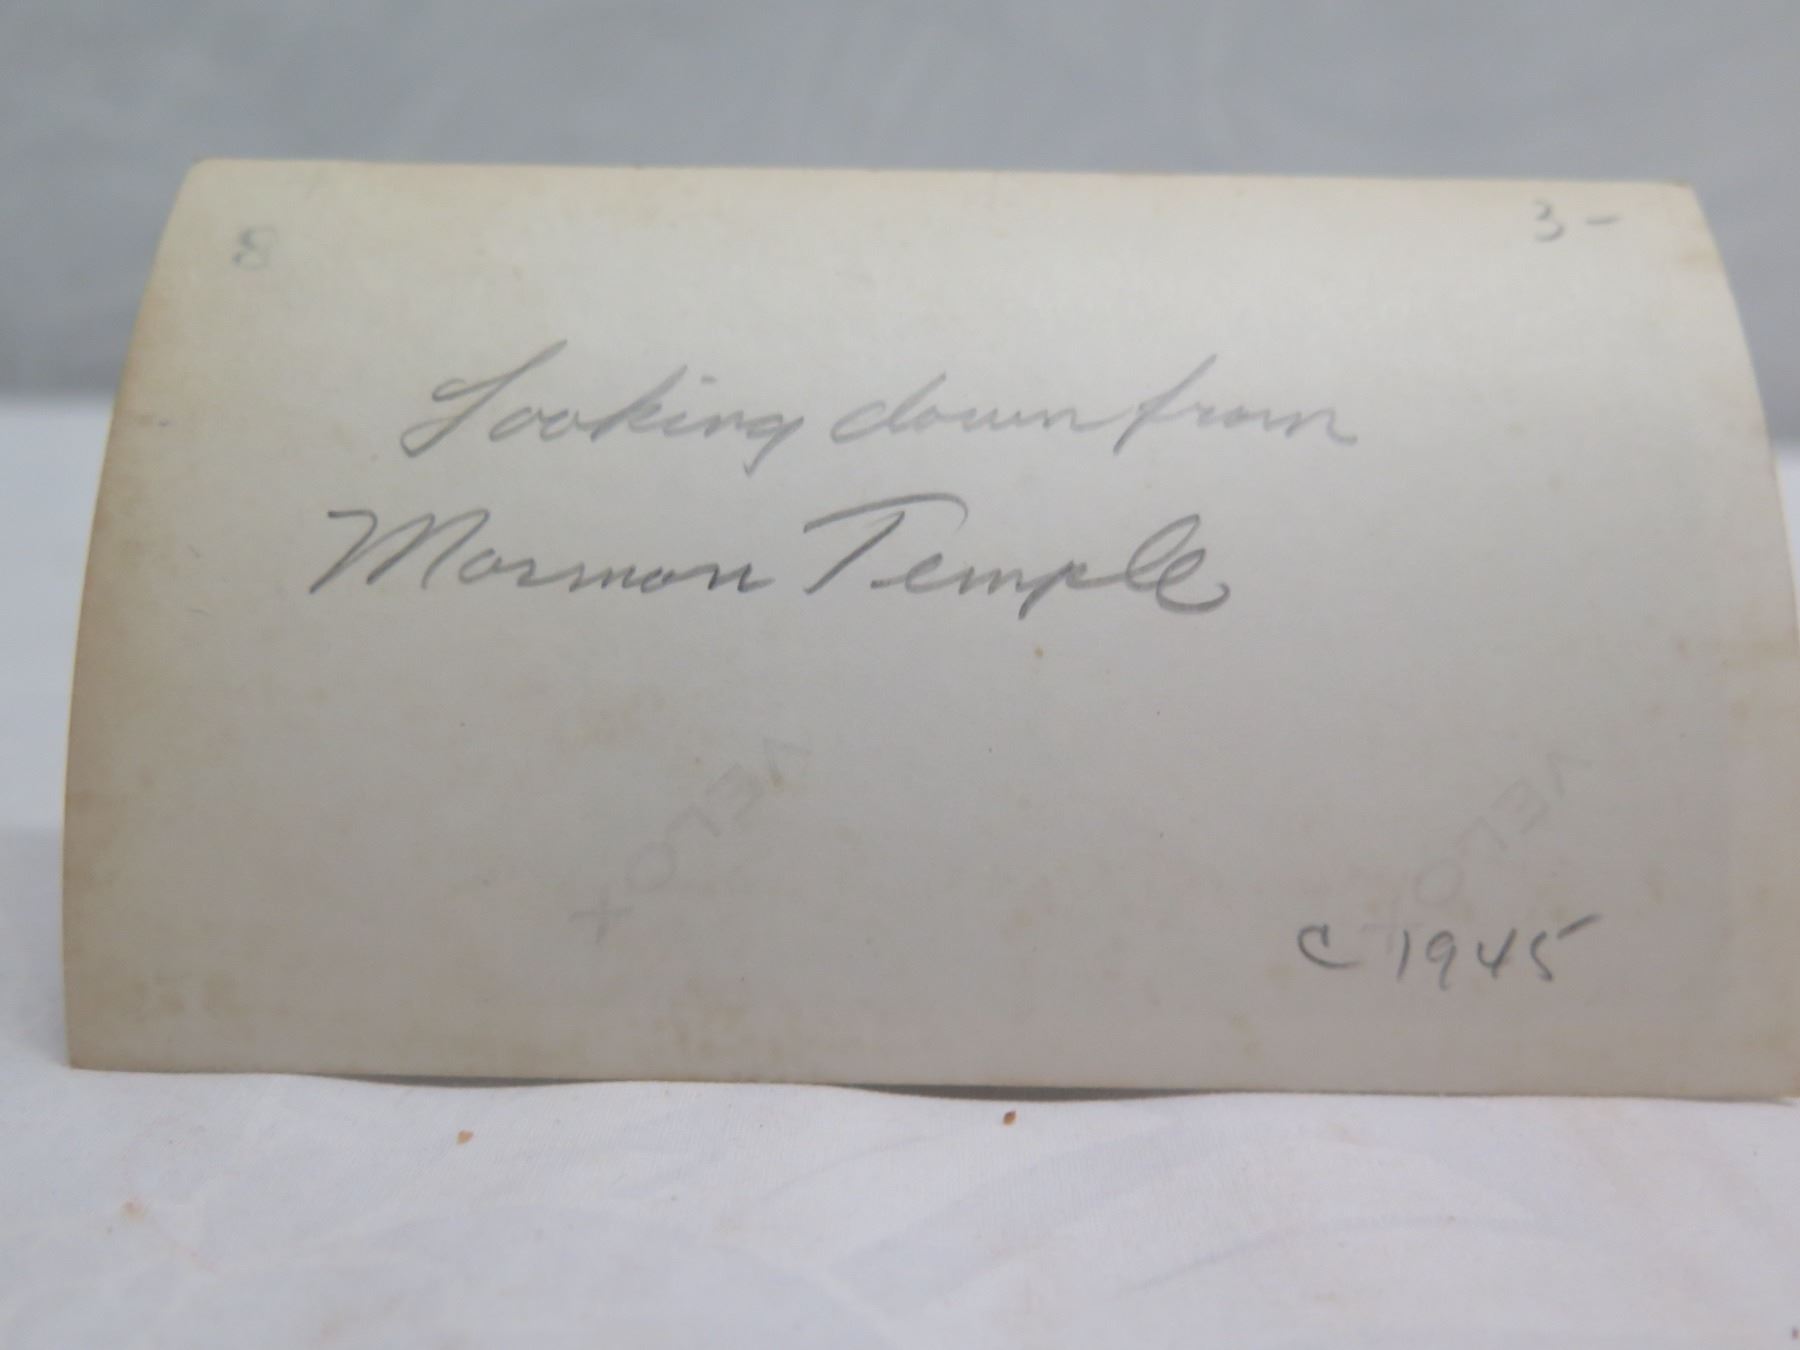 8
3 -
Looking down from
Mormon Temple
VELOX
VELOX
C 1945